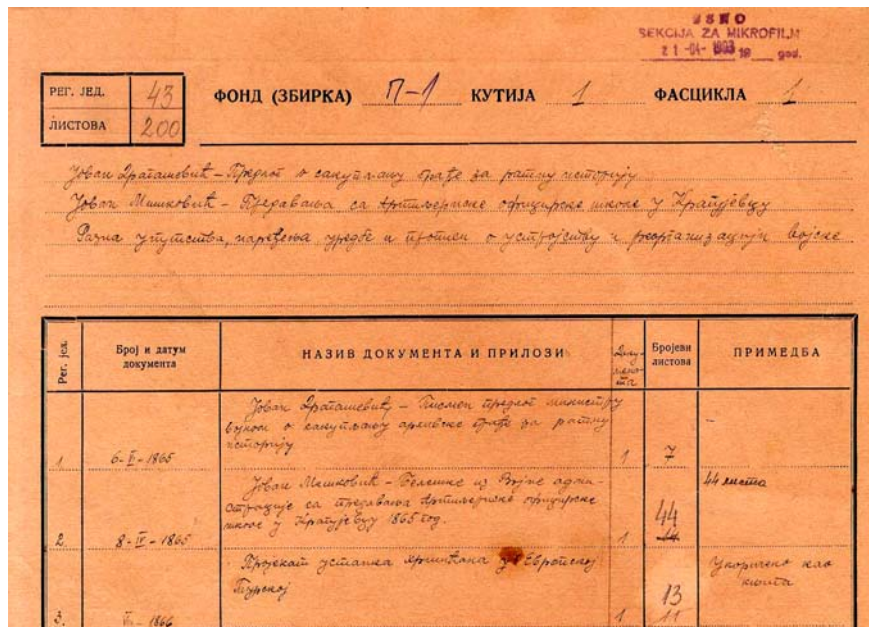 SEKCIJA ZA MIKROFILM
21 -04- 19 god.
РЕГ. ЈЕД. 43
ЛИСТОВА 200
ФОНД (ЗБИРКА) П-1 КУТИЈА 1 ФАСЦИКЛА 1
Јован Драгашевић – Предлог о сакупљању грађе за ратну историју
Јован Мишковић – Предавања са Артиљериске официрске школе у Крагујевцу
Разна упутства, наређења уредбе и прописи о устројству и реорганизацији војске
Рег. јед.
Број и датум
документа
НАЗИВ ДОКУМЕНТА И ПРИЛОЗИ
Бројеви
листова
ПРИМЕДБА
Јован Драгашевић – Писмен предлог министру
војном о сакупљању архивске грађе за ратну
историју
1. 6-II-1865 1 7 -
Јован Мишковић – Белешке из Војне адми-
страције са предавања Артиљериске официрске
школе у Крагујевцу 1865 год.
44 листа
2. 8-IV-1865 1 44
Пројекат устанка хришћана у Европској
Турској
Укоричено као
књига
3. 1866 1 13
11